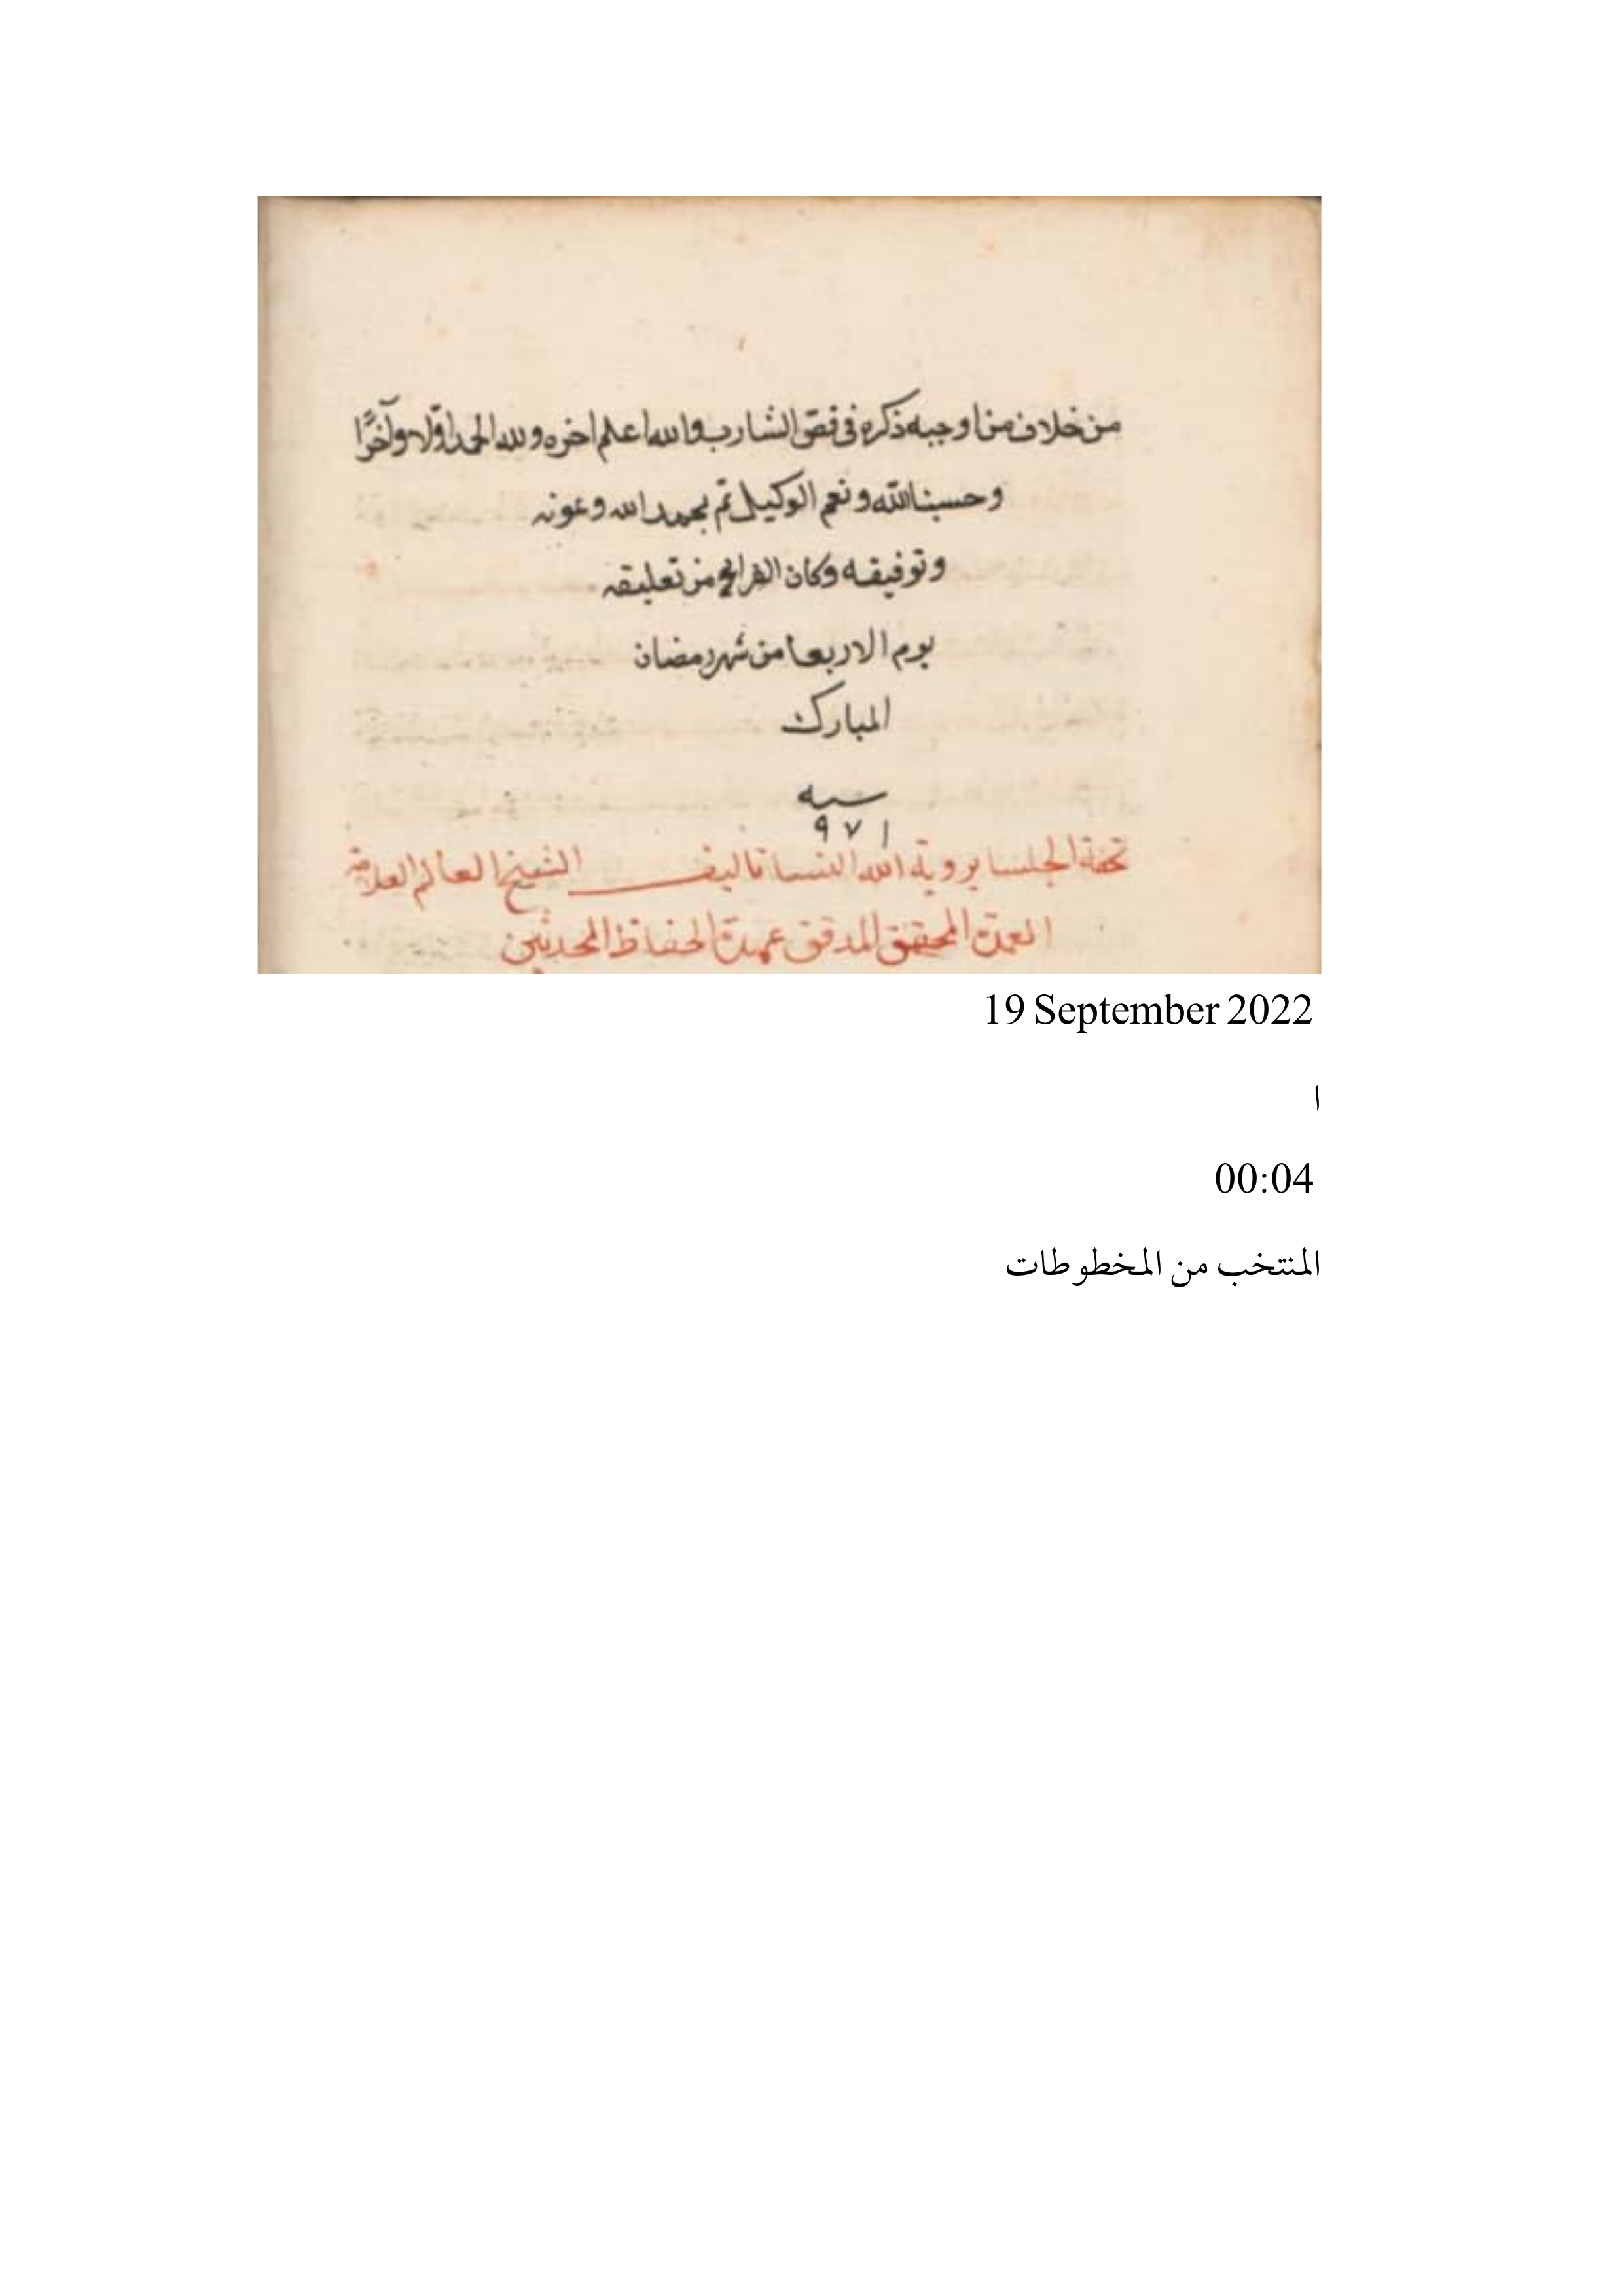 من خلاف من اوجبه ذكره في قص الشارب والله اعلم اخره ولله الحمد اولا وآخرًا
وحسبنا الله ونعم الوكيل تم بحمد الله وعونه
وتوفيقه وكان الفراغ من تعليقه
يوم الاربعا من شهر رمضان
المبارك
سنه
٩٧١
تحفة الجلسا بروية الله للنسا تاليف الشيخ العالم العلامة
العمدة المحقق المدقق عمدة الحفاظ المحدثين
19 September 2022
ا
00:04
المنتخب من المخطوطات